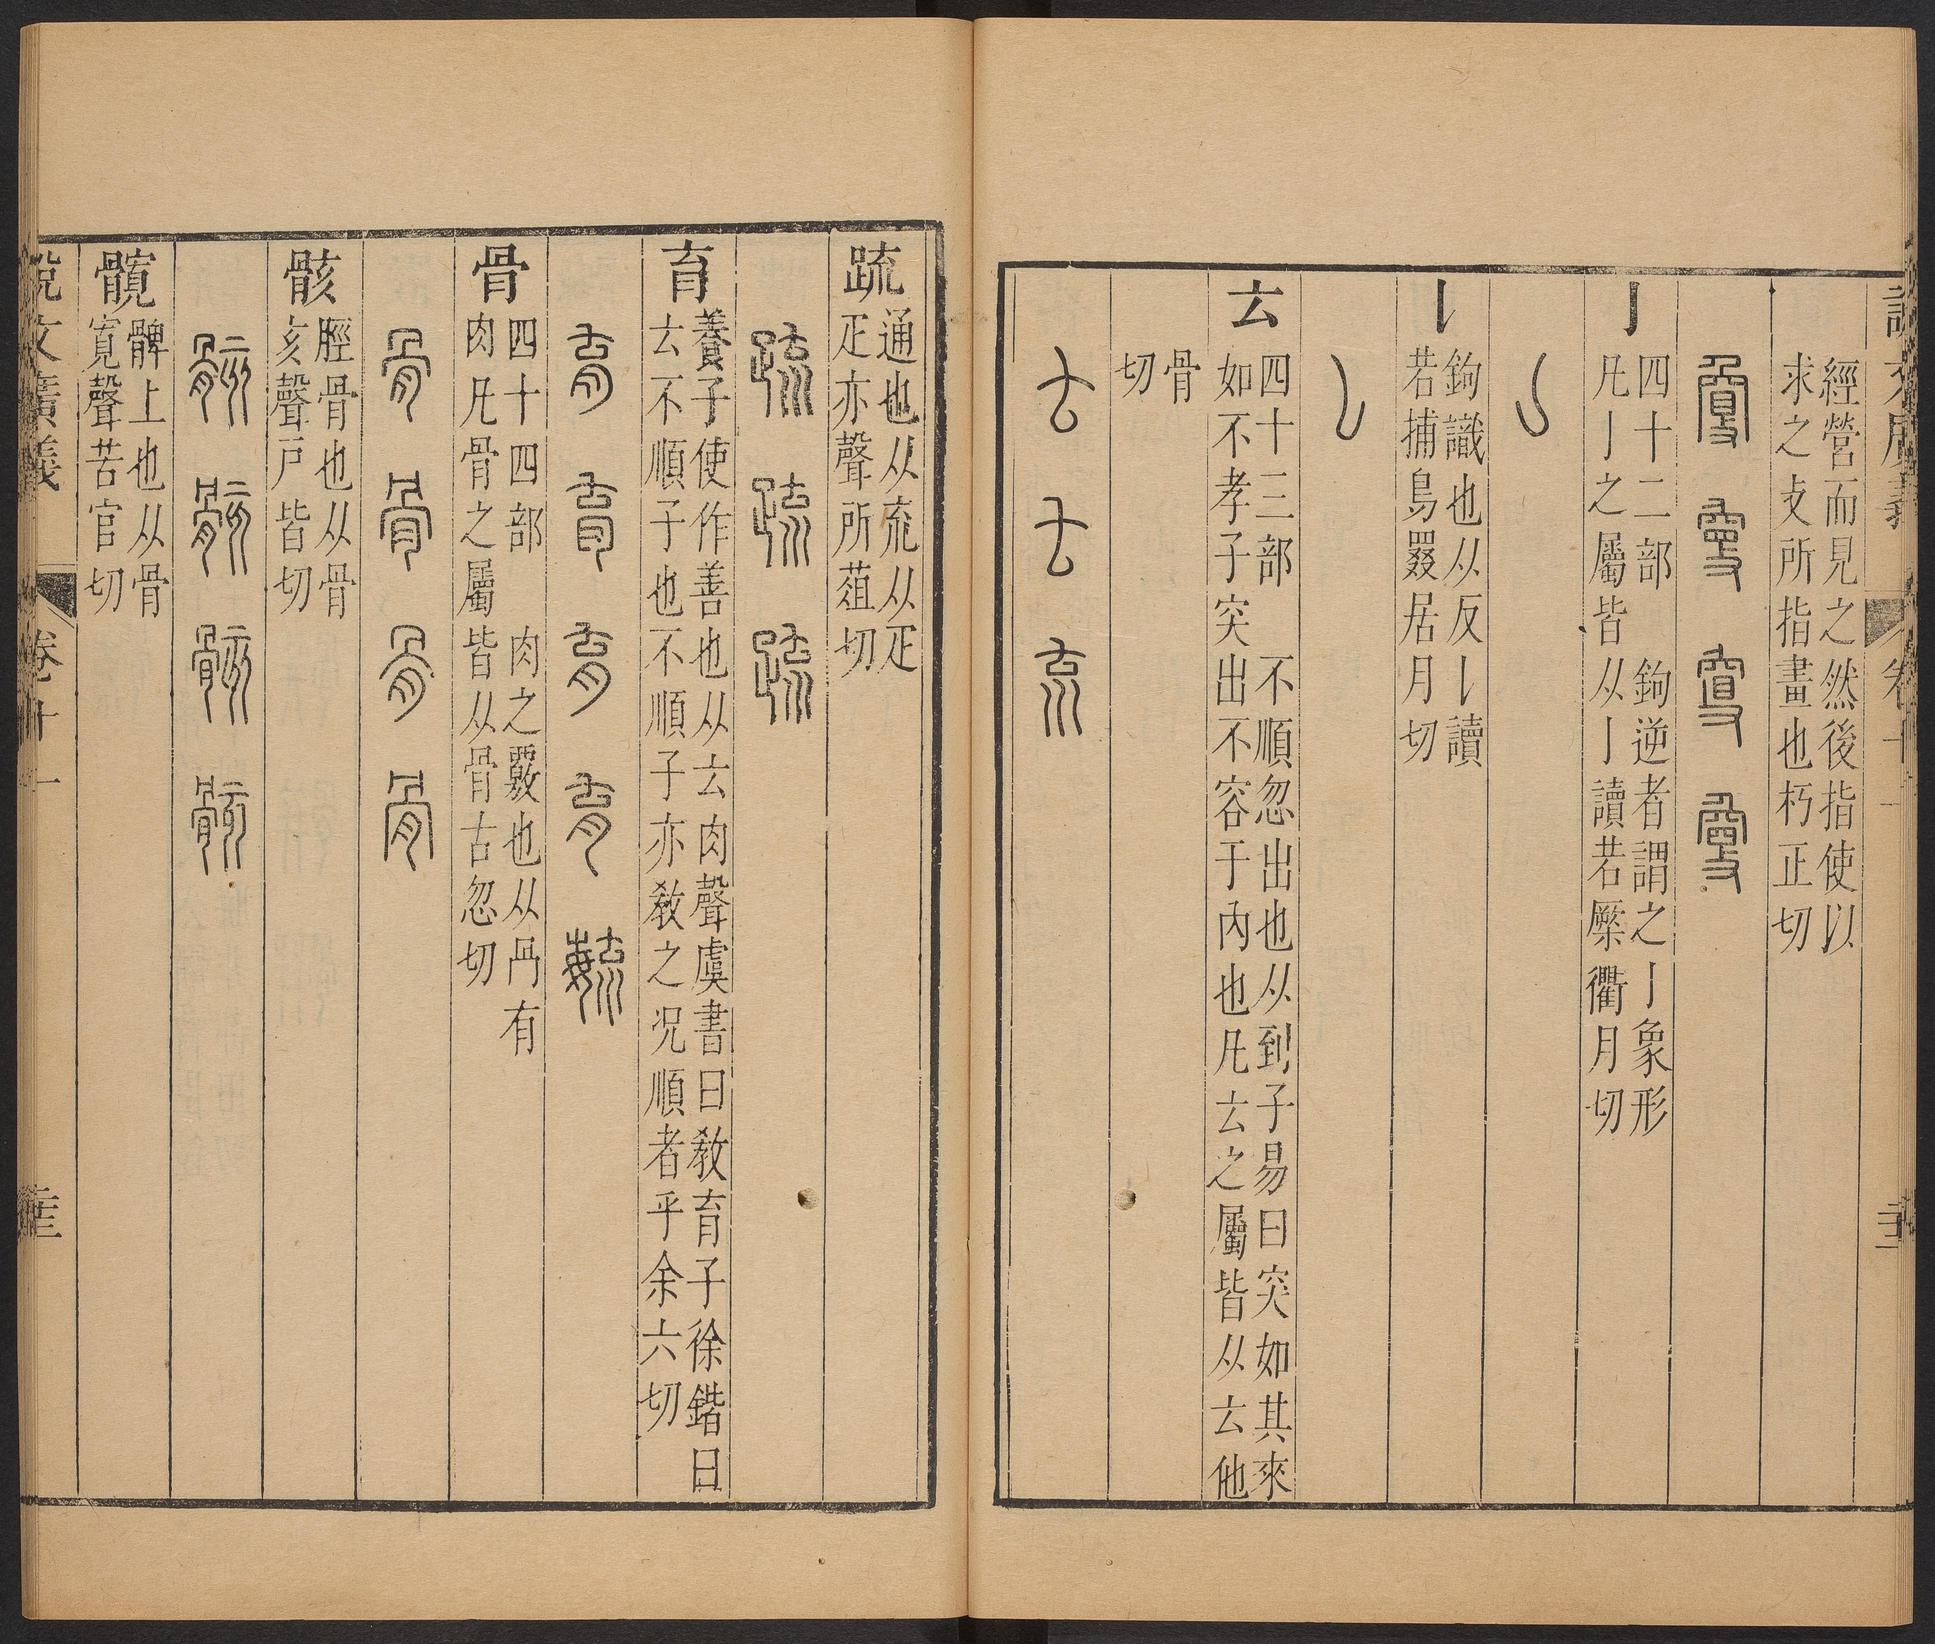 說文廣義
卷十一
經營而見之然後指使以
求之攴所指畫也朽正切
亅
四十二部　鉤逆者謂之亅象形
凡亅之屬皆从亅讀若橜衢月切
𠄌
鉤識也从反亅讀
若捕鳥罬居月切
𠫓
四十三部　不順忽出也从到子易曰突如其來
如不孝子突出不容于內也凡𠫓之屬皆从𠫓他
骨
切
疏
通也从㐬从疋
疋亦聲所葅切
育
養子使作善也从𠫓肉聲虞書曰教育子徐鍇曰
𠫓不順子也不順子亦教之况順者乎余六切
骨
四十四部　肉之覈也从冎有
肉凡骨之屬皆从骨古忽切
骸
脛骨也从骨
亥聲戶皆切
髖
髀上也从骨
寬聲苦官切
說文廣義
卷十一